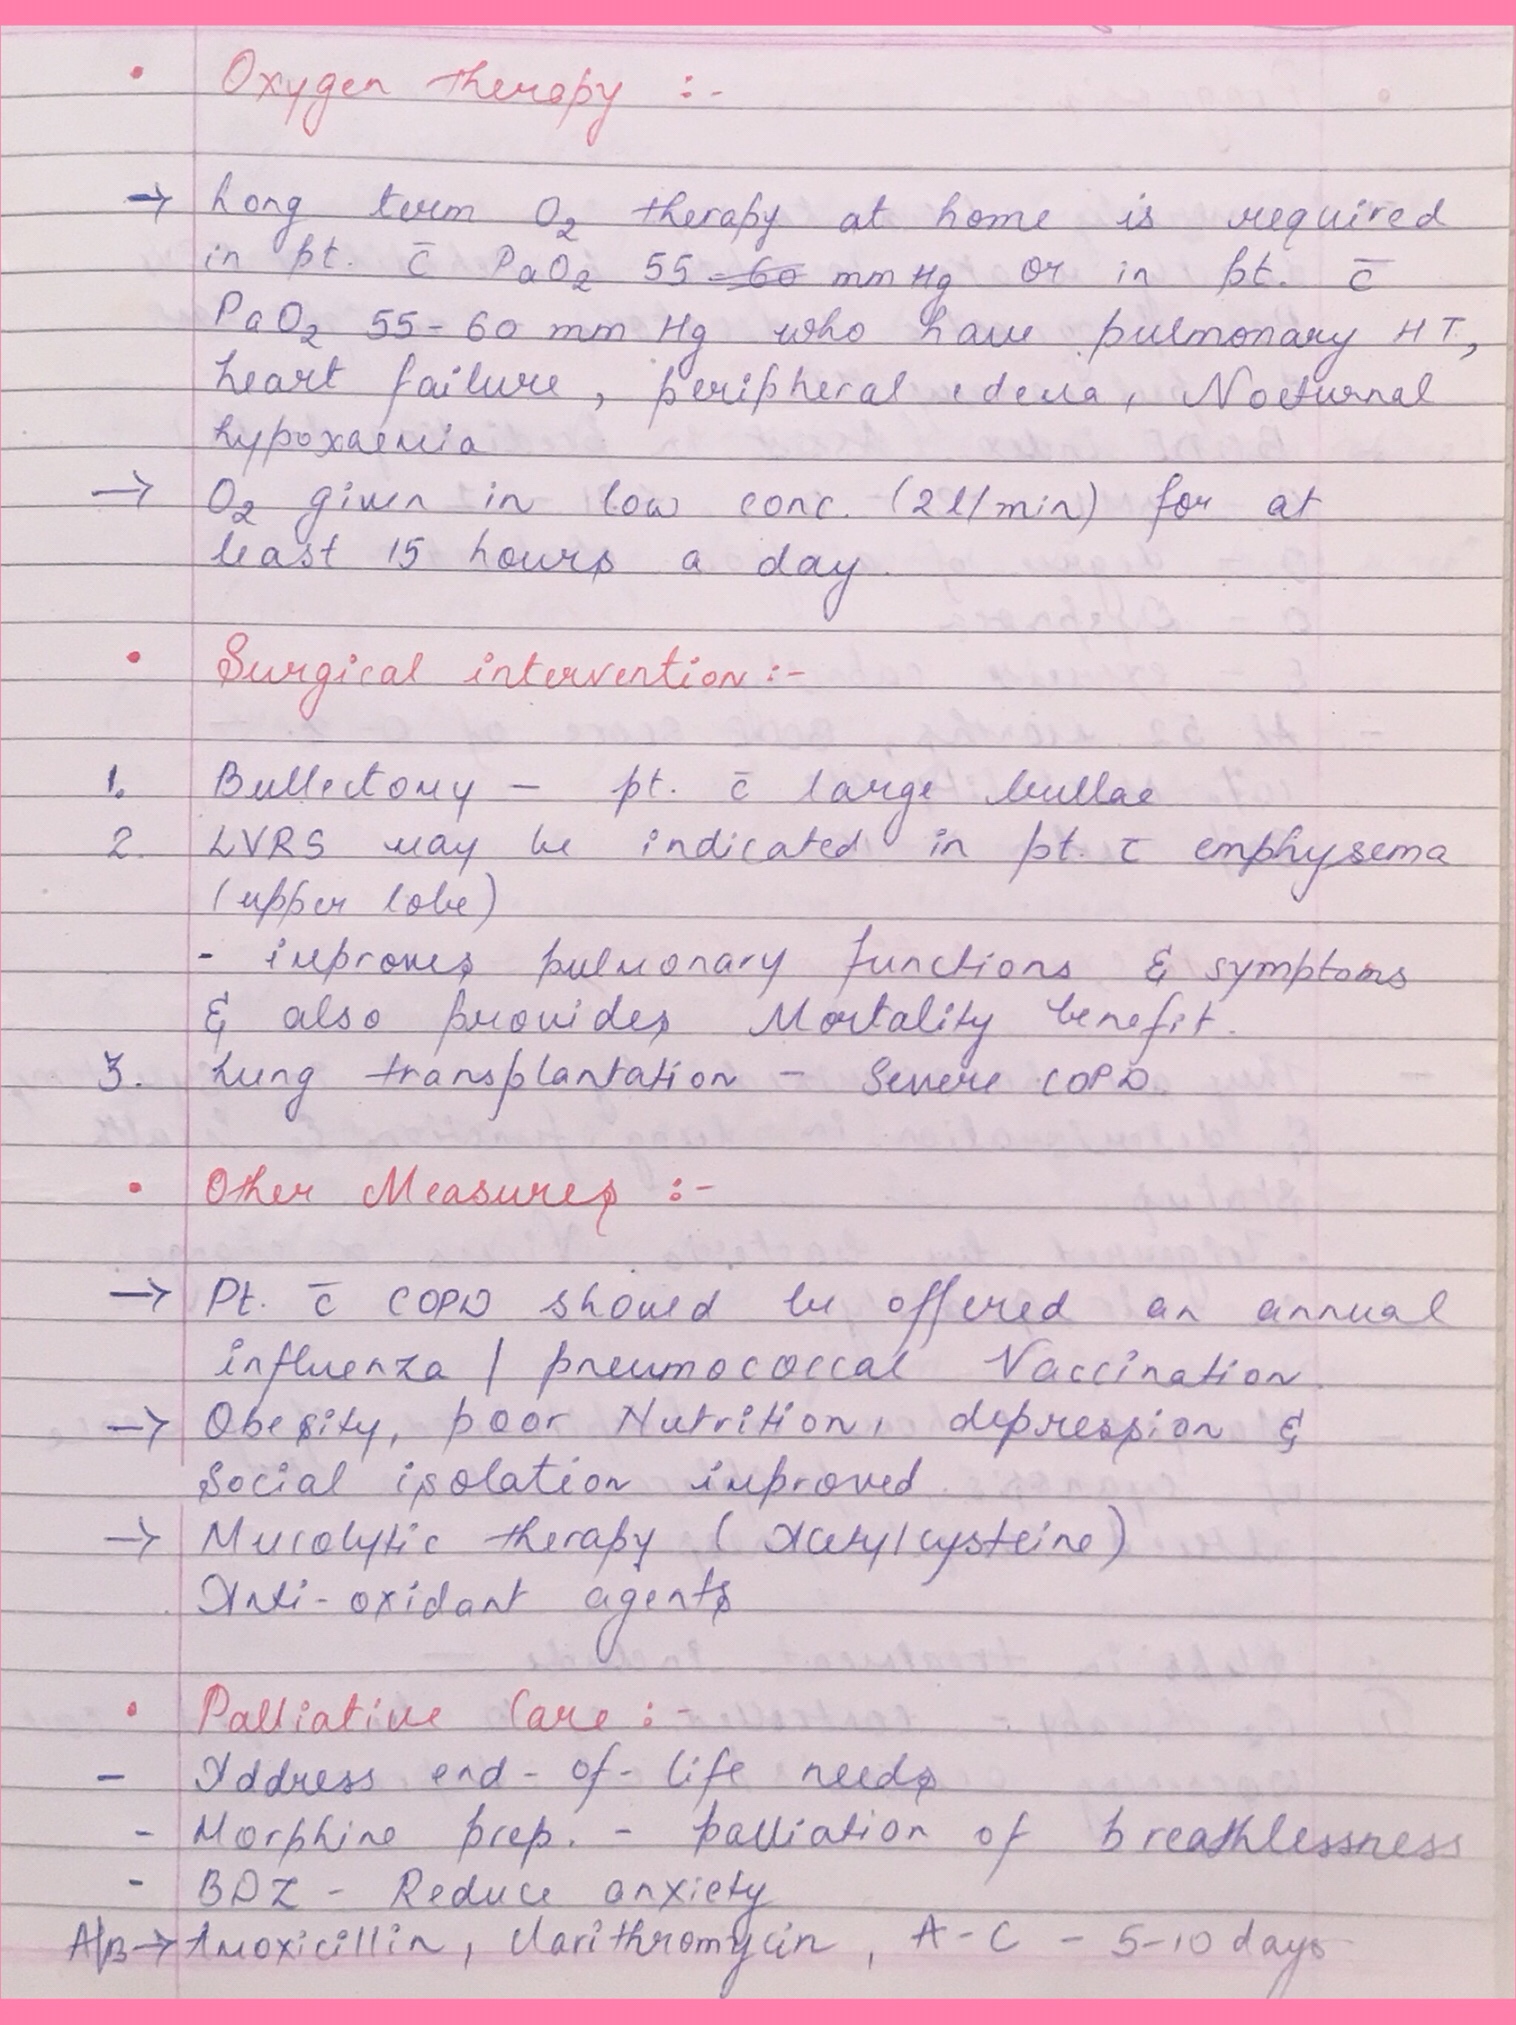 • Oxygen therapy :-
→ Long term O₂ therapy at home is required
in pt. c̄ PaO₂ 55 ~~-60~~ mm Hg or in pt. c̄
PaO₂ 55-60 mm Hg who have pulmonary HT,
heart failure, peripheral edema, Nocturnal
hypoxaemia
→ O₂ given in low conc. (2l/min) for at
least 15 hours a day.
• Surgical intervention :-
1. Bullectomy - pt. c̄ large bullae
2. LVRS may be indicated in pt. c̄ emphysema
(upper lobe)
- improves pulmonary functions & symptoms
& also provides Mortality benefit.
3. Lung transplantation - Severe COPD.
• Other Measures :-
→ Pt. c̄ COPD should be offered an annual
influenza / pneumococcal Vaccination.
→ Obesity, poor Nutrition, depression &
Social isolation improved.
→ Mucolytic therapy (Acetylcysteine)
Anti-oxidant agents
• Palliative Care :-
- Address end-of-life needs
- Morphine prep. - palliation of breathlessness
- BDZ - Reduce anxiety
A/B → Amoxicillin, Clarithromycin, A-C - 5-10 days